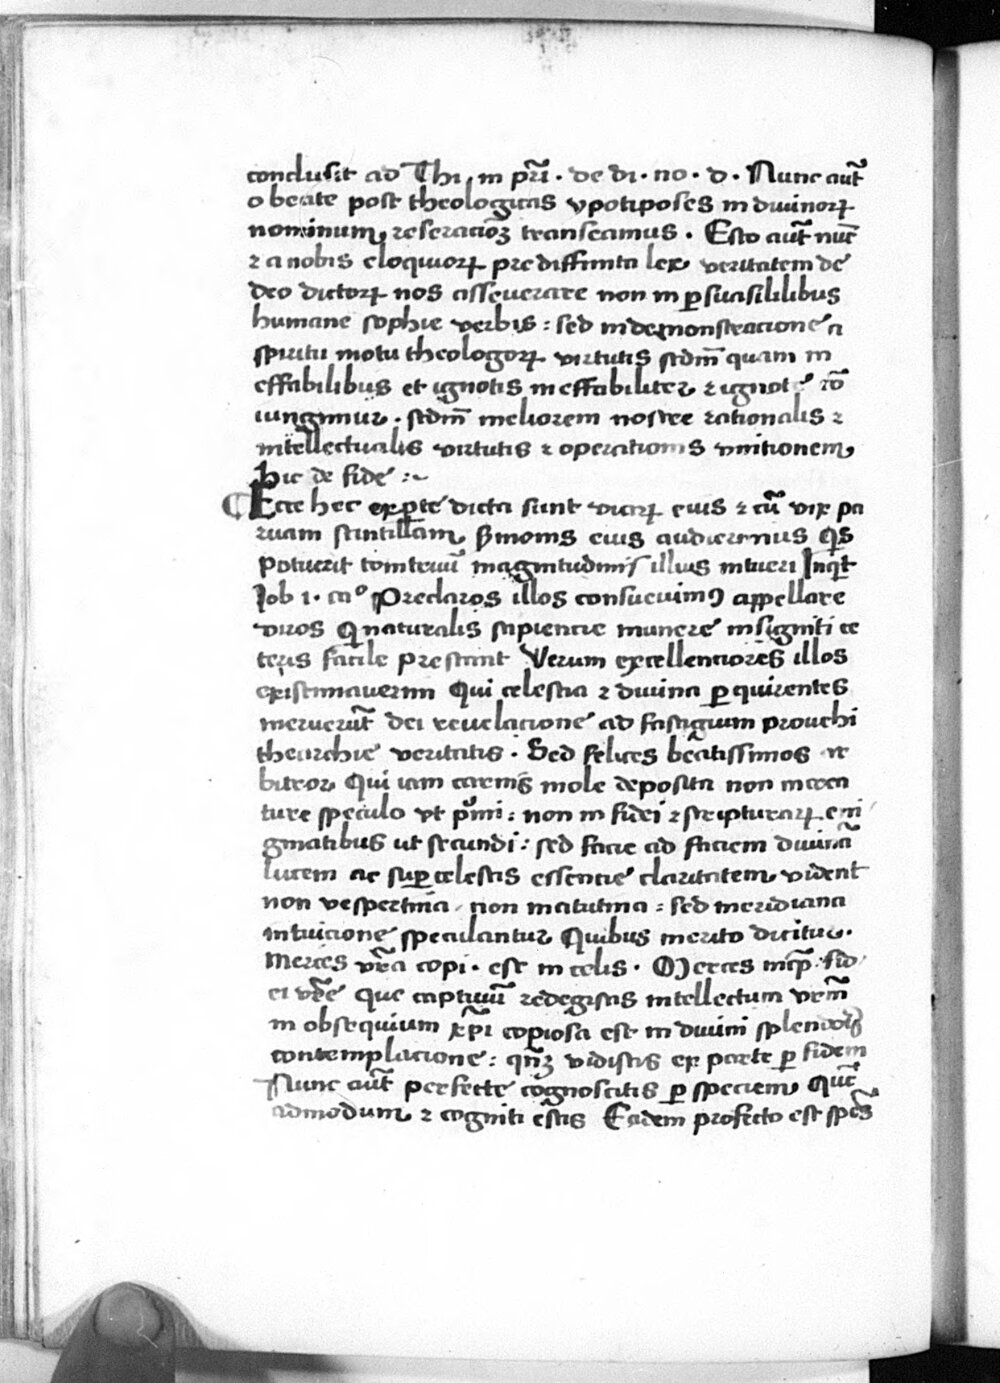 conclusit ad Thi. in pri̅. de di. no. d. Nunc aut̅
o beate post theologicas ypotiposes in diuinoꝝ
nominum reseracio̅ꝫ transeamus. Esto aut̅ nu̅c
⁊ a nobis eloquioꝝ prediffinita lex veritatem de
deo dictoꝝ nos asseuerare non in ꝑsuasililibus
humane sophie verbis: sed in demonstracione a
spiritu motu theologoꝝ virtutis scdm̅ quam in
effabilibus et ignotis ineffabiliter ⁊ ignote co̅
iungimur. scdm̅ meliorem nostre rationalis ⁊
intellectualis virtutis ⁊ operationis vnitionem
hic de fide :~
Ecce hec ex ꝑte dicta sunt viaꝝ eius ⁊ cu̅ vix pa
ruam scintillam ẜmonis eius audierimus q̅s
poterit tonitruu̅ magnitudinis illius intueri Inq̅t
Job 1. ca° Preclaros illos consueuimꝰ appellare
viros q̅ naturalis sapiencie munere insigniti ce
teris facile prestant Verum excellenciores illos
existimauerim Qui celestia ⁊ diuina ꝑquirentes
meruerūt dei reuelacione ad fastigium prouehi
thearchie veritatis. Sed felices beatissimos ar
bitror Qui iam carnis mole deposita non in crea
ture speculo vt pͥmi: non in fidei ⁊ scripturaꝝ eni
gmatibus ut secundi: sed facie ad faciem diuina̅
lucem ac suꝑcelestis essencie claritatem vident
non vespertina, non matutina: sed meridiana
intuicione speculantur Quibus merito dicitur.
Merces vr̅a copi. est in celis. Merces inqͣꝑ. fid
ei vr̅e que captiuu̅ redegistis intellectum vr̅m
in obsequium xp̅i copiosa est in diuini splendoris
contemplacione: qm̅ꝫ vidistis ex parte ꝑ fidem
Nunc aut̅ perfecte cognoscitis ꝑ speciem Que̅
admodum ⁊ cogniti estis Eadem profecto est spe̅s